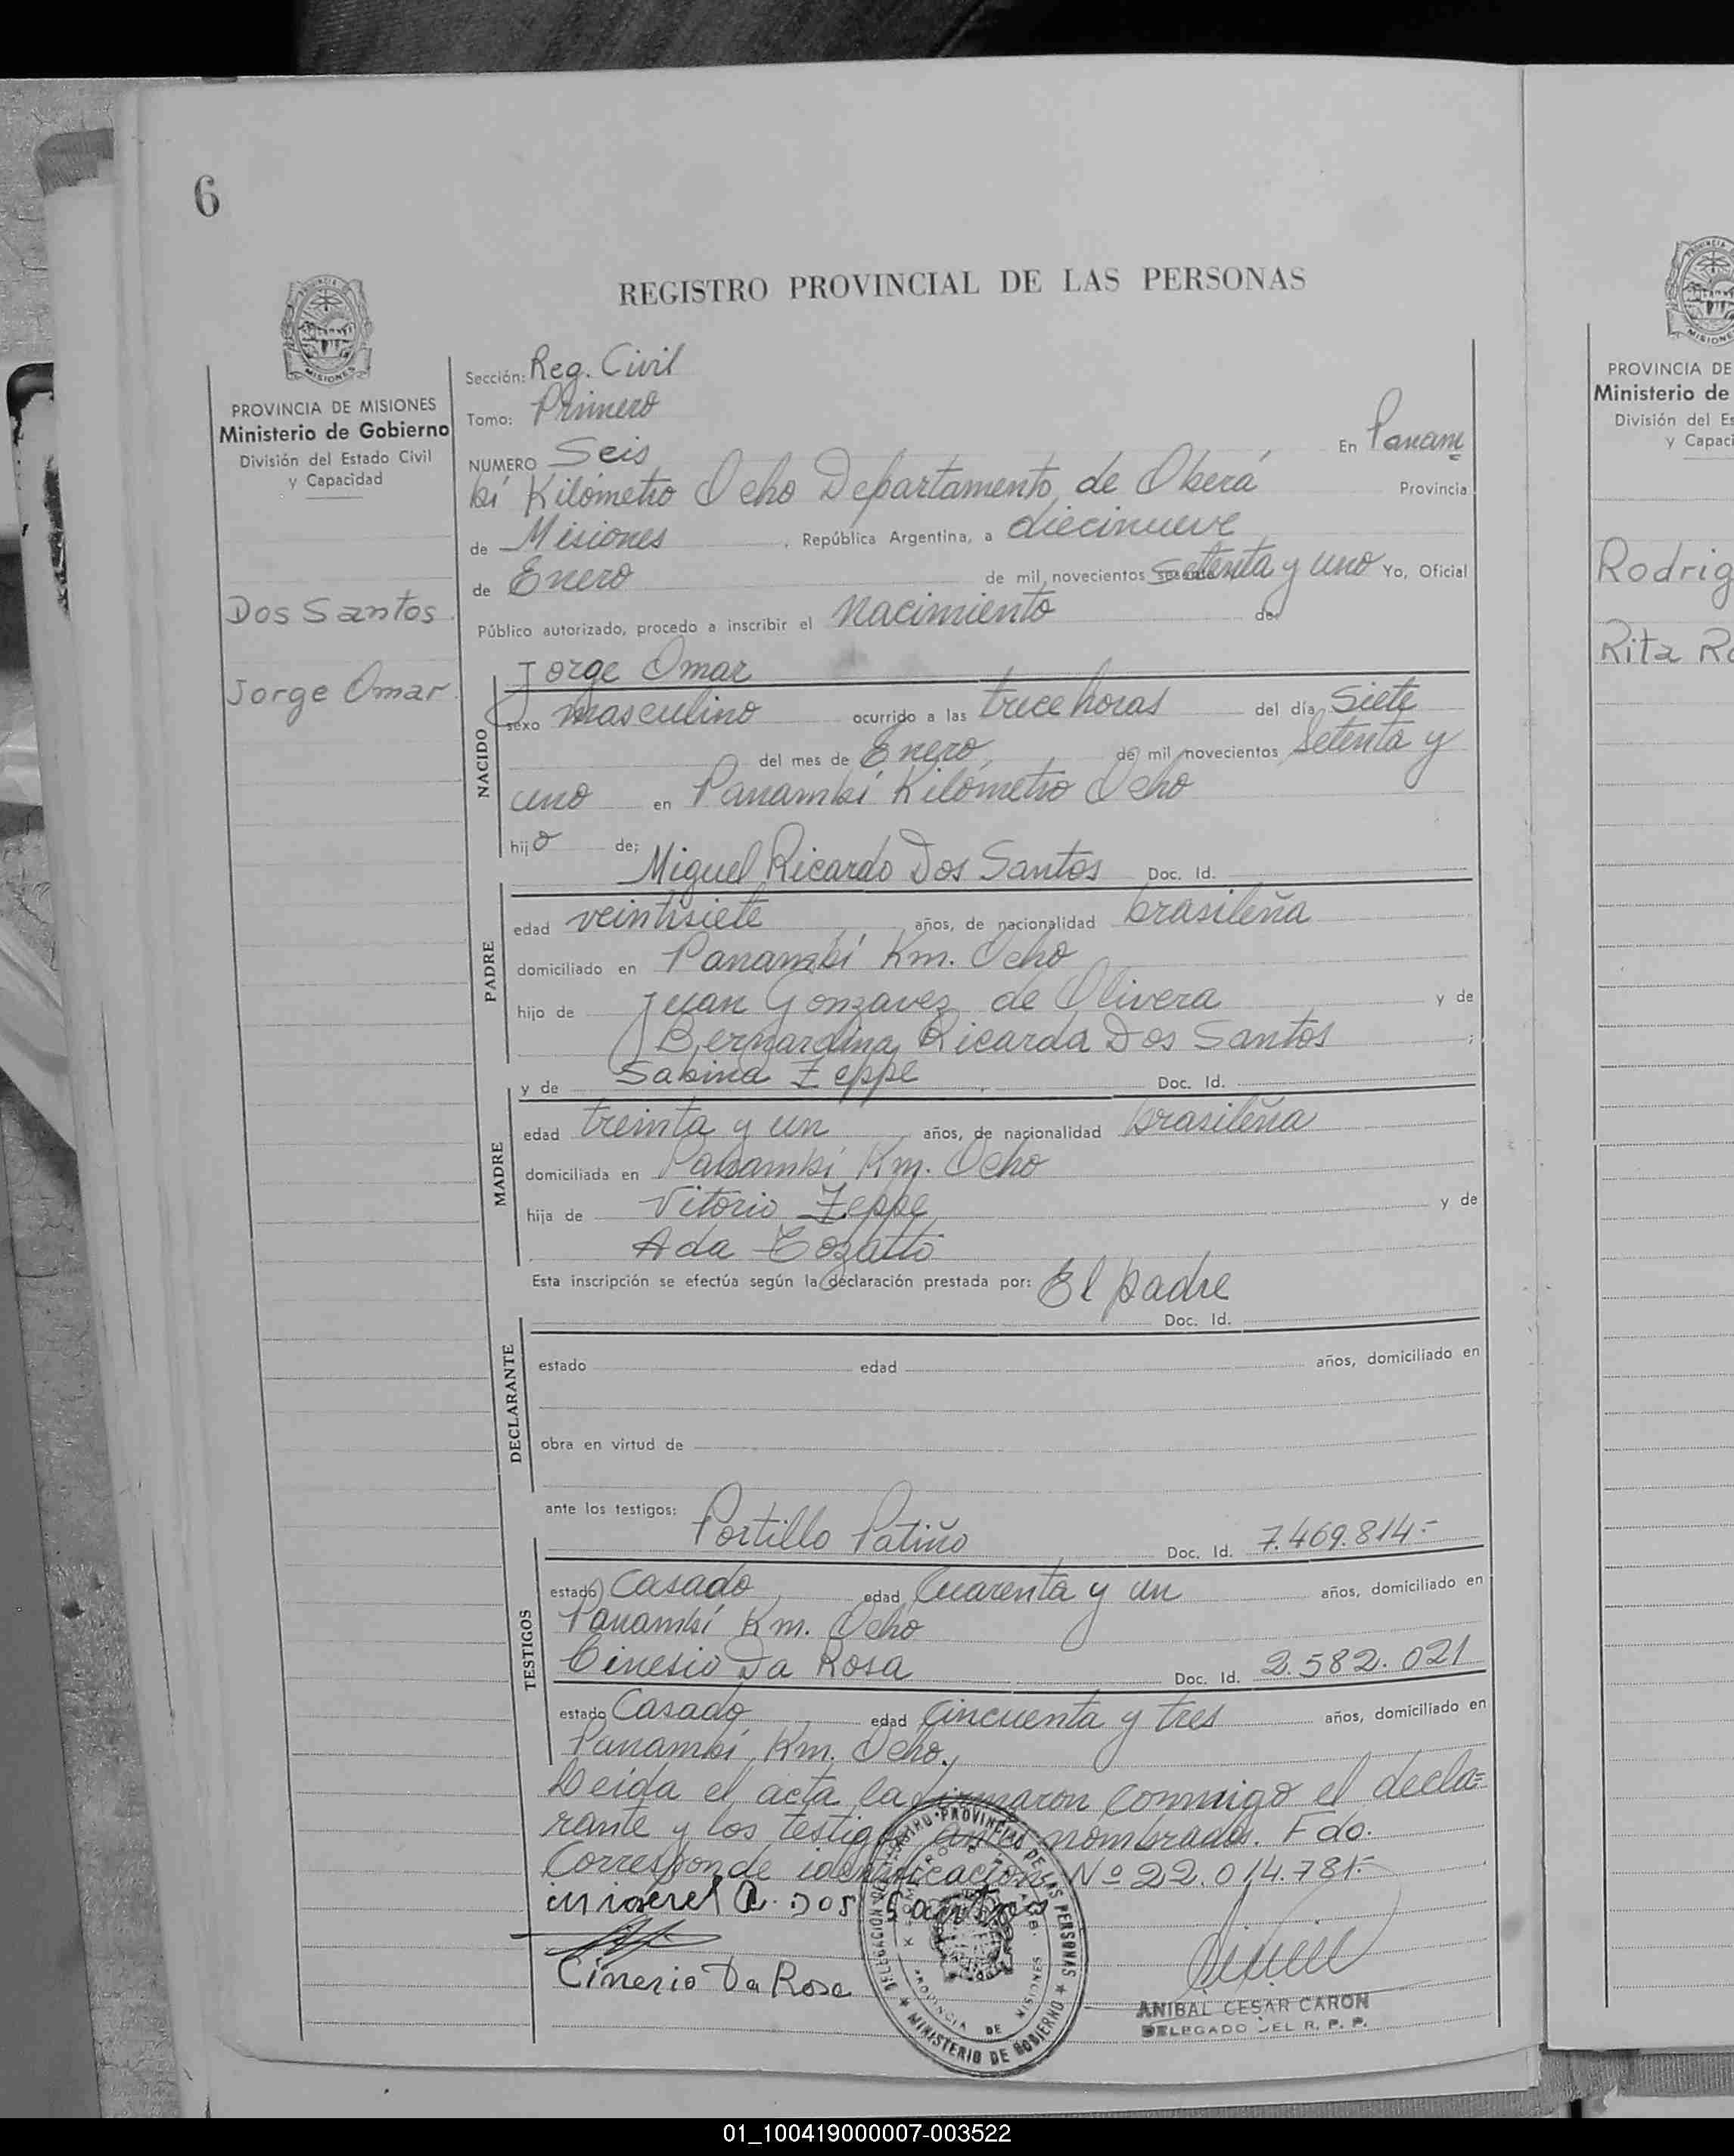 6
REGISTRO PROVINCIAL DE LAS PERSONAS
MISIONES
PROVINCIA DE MISIONES
Ministerio de Gobierno
División del Estado Civil
y Capacidad
Dos Santos
Jorge Omar
Sección: Reg. Civil
Tomo: Primero
NUMERO Seis En Panam
bí Kilómetro Ocho Departamento de Oberá Provincia
de Misiones, República Argentina, a diecinueve
de Enero de mil novecientos setenta y uno Yo, Oficial
Público autorizado, procedo a inscribir el nacimiento de
Jorge Omar
NACIDO
sexo masculino ocurrido a las trece horas del día Siete
del mes de Enero de mil novecientos Setenta y
uno en Panambí Kilómetro Ocho
hijo de;
Miguel Ricardo Dos Santos Doc. Id.
PADRE
edad veintisiete años, de nacionalidad brasileña
domiciliado en Panambí Km. Ocho
hijo de Juan Gonzavez de Olivera y de
Bernardina Ricarda Dos Santos ;
y de Sabina Zeppe Doc. Id.
MADRE
edad treinta y un años, de nacionalidad brasileña
domiciliada en Panambí Km. Ocho
hija de Vitorio Zeppe y de
Ada Cozatti
Esta inscripción se efectúa según la declaración prestada por: El padre
Doc. Id.
DECLARANTE
estado edad años, domiciliado en
obra en virtud de
ante los testigos:
Portillo Patiño Doc. Id. 7.469.814.-
TESTIGOS
estado Casado edad Cuarenta y un años, domiciliado en
Panambí Km. Ocho
Cinesio Da Rosa Doc. Id. 2.582.021
estado Casado edad Cincuenta y tres años, domiciliado en
Panambí Km. Ocho.
Leida el acta la firmaron conmigo el decla=
rante y los testigos antes nombrados. Fdo.
Corresponde identificación Nº 22.014.781.-
Dos Santos
Cinerio Da Rosa
PROVINCIAL DE LAS PERSONAS
MINISTERIO DE GOBIERNO
PROVINCIA DE MISIONES
ANIBAL CESAR CARON
DELEGADO DEL R. P. P.
MISIONES
PROVINCIA DE
Ministerio de
División del Es
y Capaci
Rodrig
Rita Ro
01_100419000007-003522